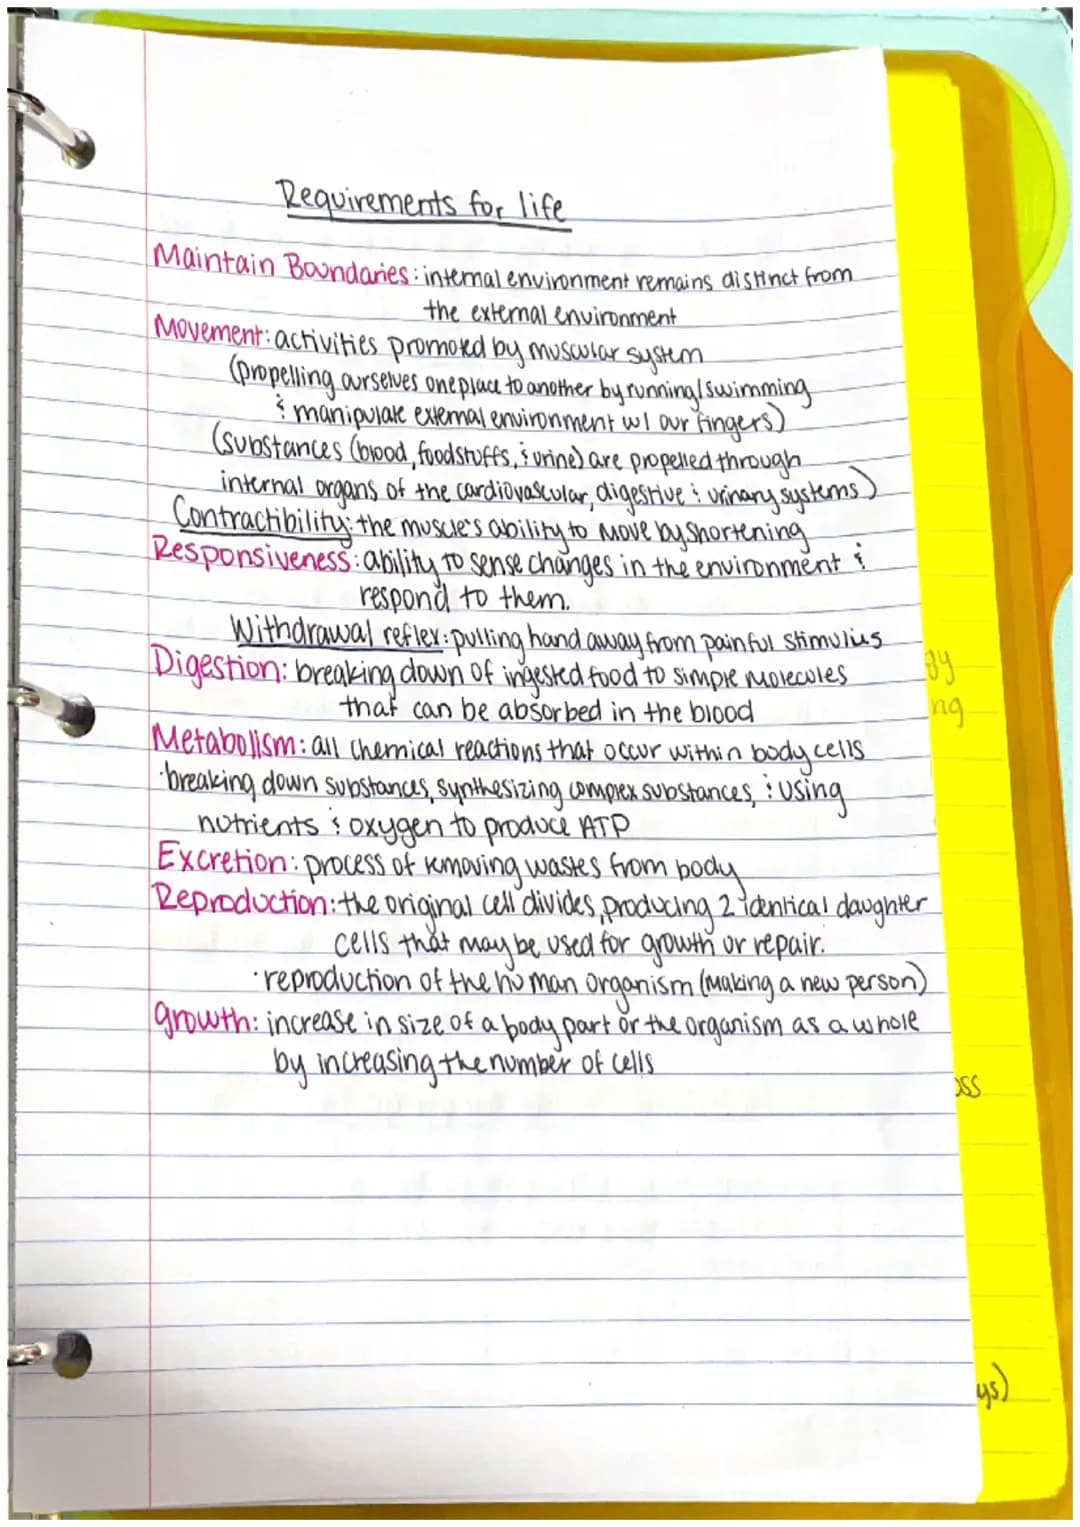 Requirements for life
Maintain Boundaries: internal environment remains distinct from
the external environment
Movement: activities promoted by muscular system
(propelling ourselves one place to another by running/swimming
& manipulate external environment w/ our fingers)
(substances (blood, foodstuffs, & urine) are propelled through
internal organs of the cardiovascular, digestive & urinary systems)
Contractibility: the muscle's ability to move by shortening
Responsiveness: ability to sense changes in the environment &
respond to them.
Withdrawal reflex: pulling hand away from painful stimulius
Digestion: breaking down of ingested food to simple molecules
that can be absorbed in the blood
Metabolism: all chemical reactions that occur within body cells
·breaking down substances, synthesizing complex substances, & using
nutrients & oxygen to produce ATP
Excretion: process of removing wastes from body
Reproduction: the original cell divides, producing 2 identical daughter
cells that may be used for growth or repair.
·reproduction of the human organism (making a new person)
growth: increase in size of a body part or the organism as a whole
by increasing the number of cells
gy
ng
oss
ys)